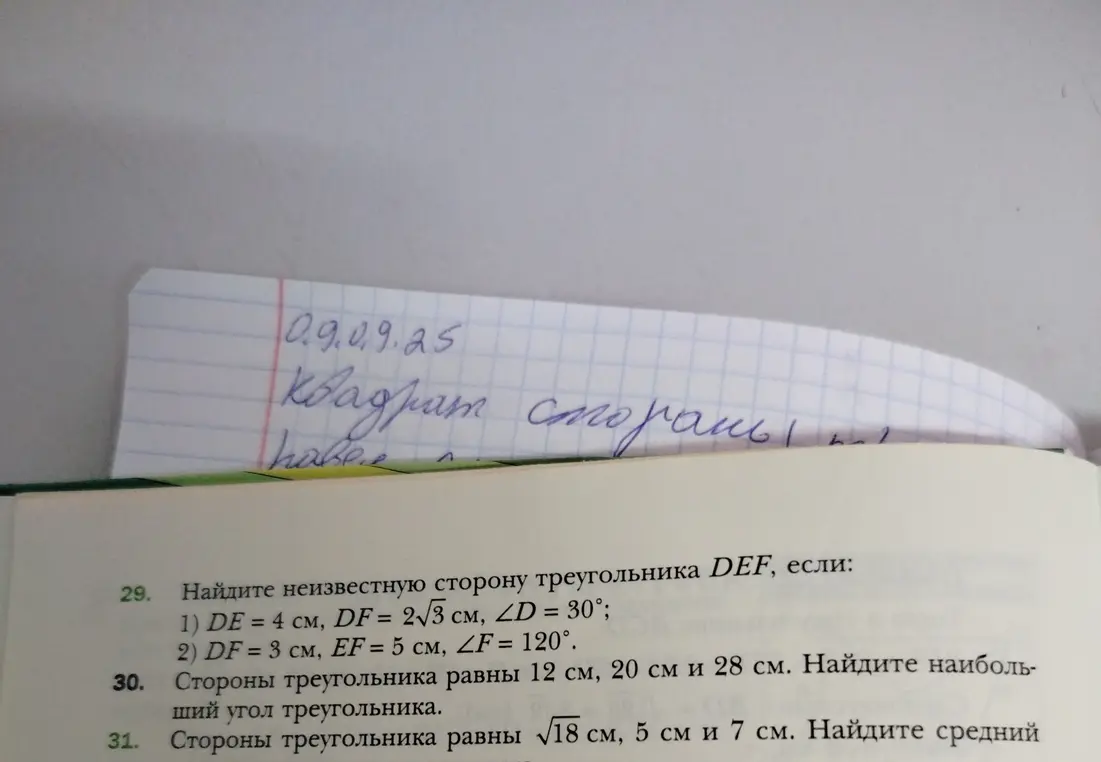 0.9.0.9.25
Квадрат стораны
29. Найдите неизвестную сторону треугольника DEF, если:
1) DE = 4 см, DF = 2√3 см, ∠D = 30°;
2) DF = 3 см, EF = 5 см, ∠F = 120°.
30. Стороны треугольника равны 12 см, 20 см и 28 см. Найдите наиболь-
ший угол треугольника.
31. Стороны треугольника равны √18 см, 5 см и 7 см. Найдите средний